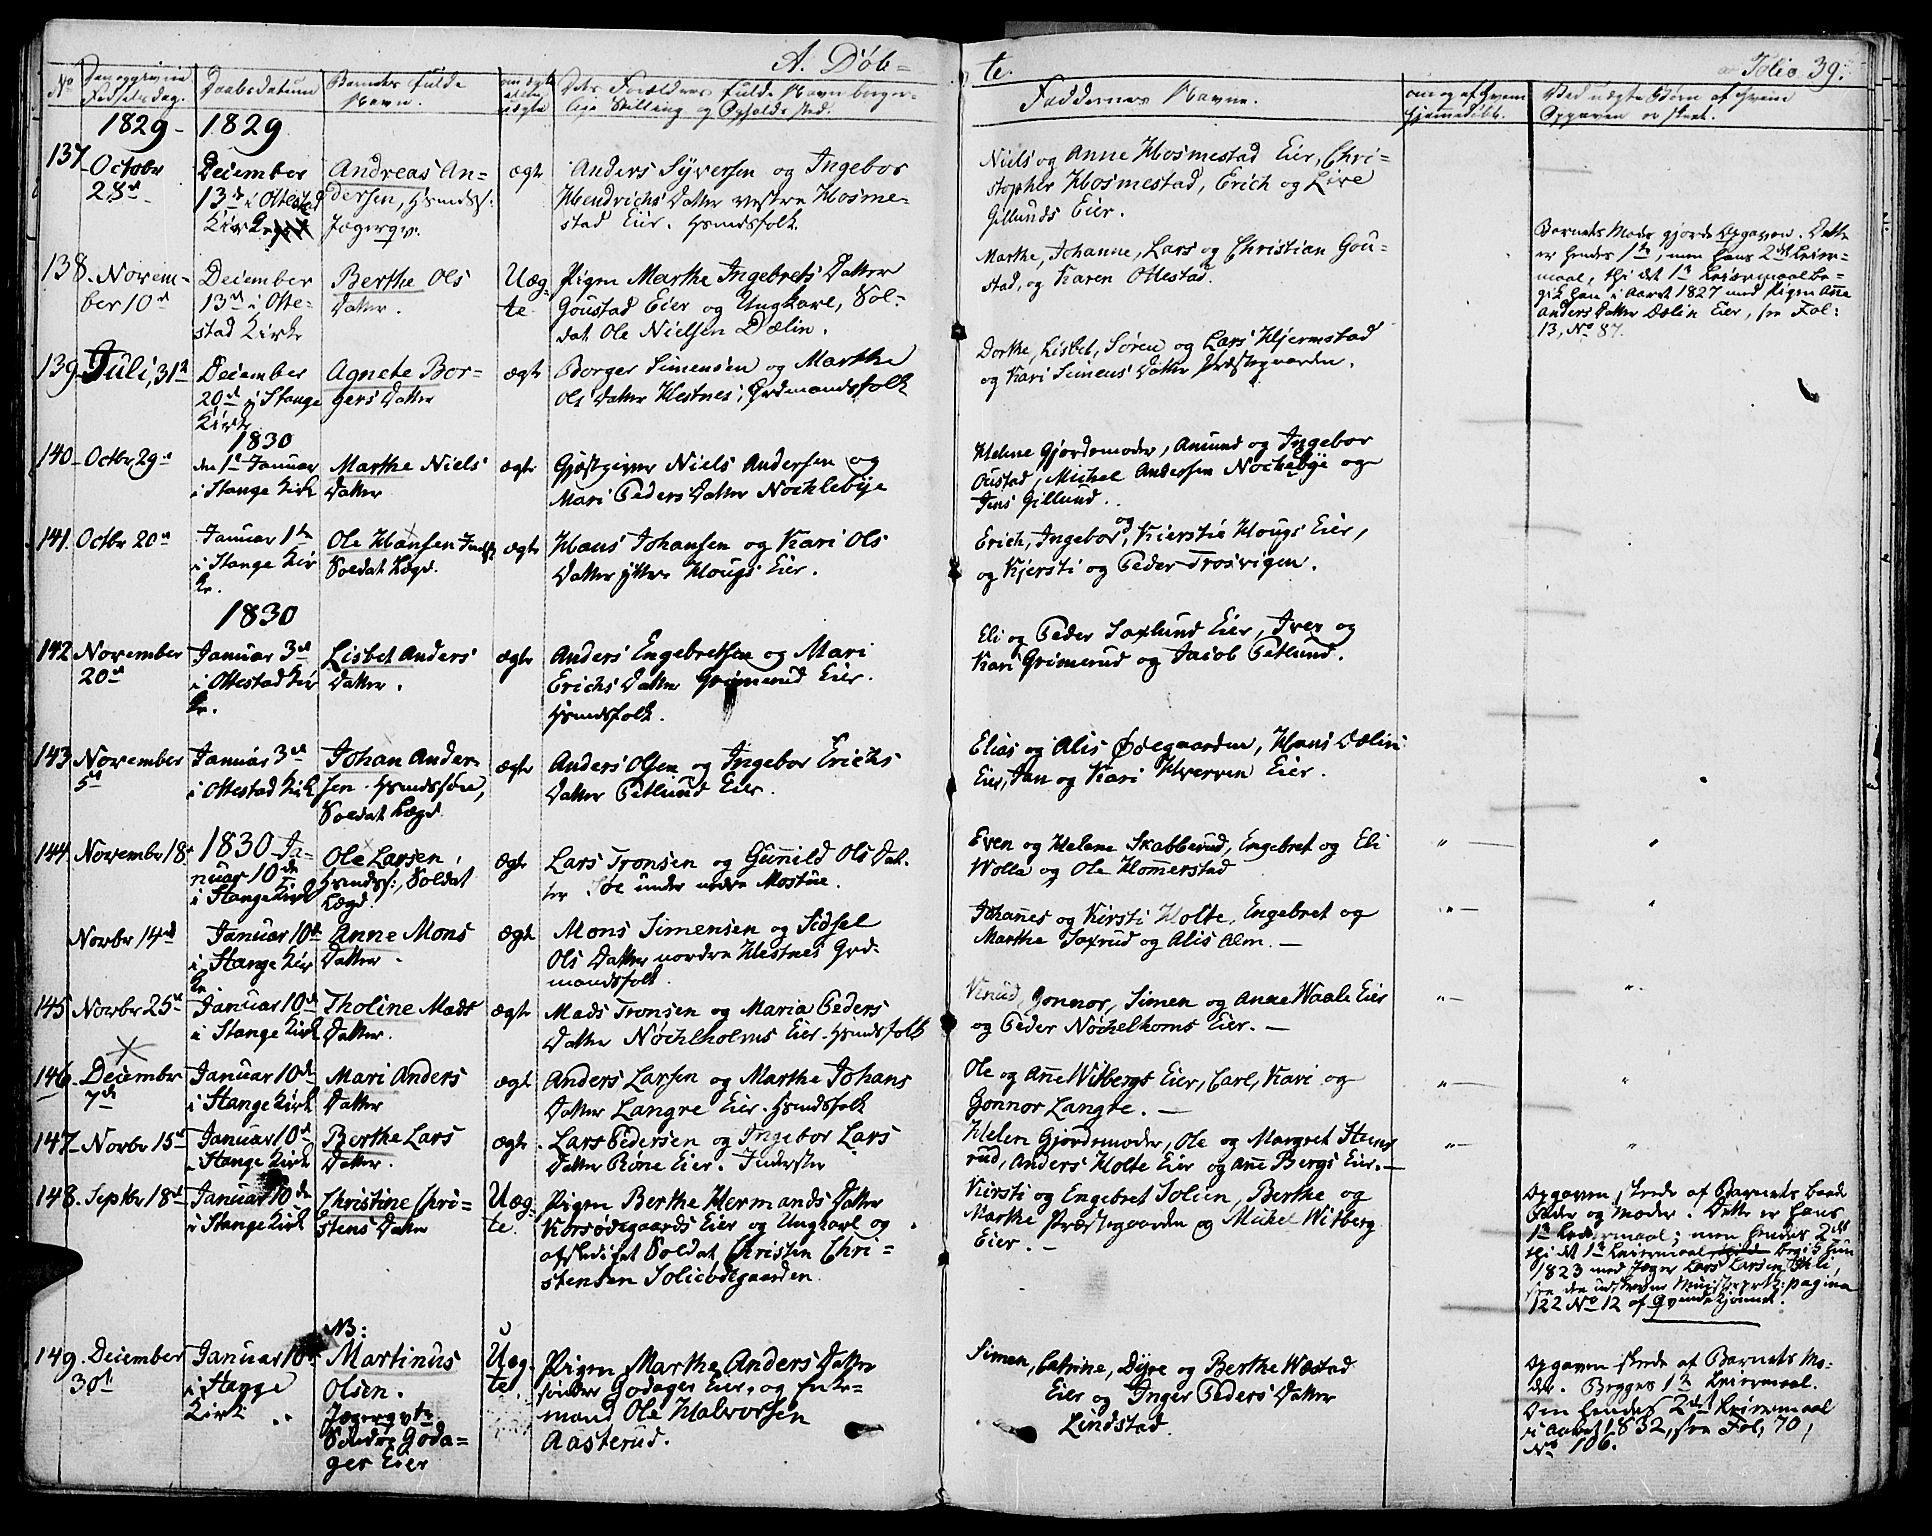 A. Døb-
te.
Folio 39.
No
Fødselsdag.
Daabsdatum
Barnets fulde
Navn.
Faddernes Navne.
1829 - 1829
137 October
28de
December
13de i Ottestad
Kirke
Andreas An-
dersen, Hsmdss:
Jægerqv.
ægte
Anders Syversen og Ingebor
Hendrichs Datter vestre Hosme-
stad Eier. Hsmdsfolk
Niels og Anne Hosmestad Eier, Chri-
stopher Hosmestad, Erich og Live
Gillunds Eier.
138. Novem-
ber 10de
December
13de i Otte-
stad Kirke
Berthe Ols
Datter.
Uæg-
te
Pigen Marthe Ingebrets Datter
Goustad Eier og Ungkarl, Sol-
dat Ole Nielsen Dælin.
Marthe, Johanne, Lars og Christian Gou-
stad, og Karen Ottestad.
Barnets Moder gjorde Opgaven. Dette
er hendes 1te, men hans 2det Leier-
maal, thi det 1te Leiermaal be-
gik han i Aaret 1827 med Pigen Anne
Anders Datter Dælin Eier, see Fol:
13, No 87.
139 Juli, 31te
December
20de i Stange
Kirke
Agnete Bor-
gers Datter
ægte
Borger Simensen og Marthe
Ols Datter Hestnes, Grdmandsfolk
Dorthe, Lisbet, Søren og Lars Hjermstad
og Kari Simens Datter Præstegaarden.
1830
140 Octbr 29de
den 1te Januar
i Stange Kirke
Marthe Niels
Datter
ægte
Gjæstgiver Niels Andersen og
Mari Peders Datter Nøchlebye
Helene Gjordemoder, Amund og Ingebor
Oustad, Michel Andersen Nøchlebye og
Jens Gillund.
141. Octbr 20de
Januar 1te
i Stange Kir
ke.
Ole Hansen
Soldat Lægd.
ægte
Hans Johansen og Kari Ols
Datter yttre Hougs Eier.
Erich, Ingebor og Kierstie Hougs Eier,
og Kjersti og Peder Trosvigen.
1830
142 November
20de
Januar 3de
i Ottestad Kir
ke.
Lisbet Anders
Datter.
ægte
Anders Engebretsen og Mari
Erichs Datter Grimerud Eier.
Hsmdsfolk.
Eli og Peder Saxlund Eier, Iver og
Kari Grimerud og Jacob Petlund.
143 November
5te
Januar 3de
i Ottestad Kirke
Johan Ander-
sen. Hsmdssøn,
Soldat Lægd
ægte
Anders Olsen og Ingebor Erichs
Datter Petlund Eier.
Elias og Alis Ødegaarden, Hans Dælin
Eier, Jan og Kari Hverven Eier.
144 Novembr 18de
1830 Ja-
nuar 10de
i Stange Kirke
Ole Larsen,
Hsmdss:, Soldat
Lægd.
ægte
Lars Tronsen og Gunild Ols Dat-
ter Søe under nedre Mostue.
Even og Helene Skabberud, Engebret og Eli
Wolla og Ole Hommerstad
Novbr 14de
Januar 10de
i Stange Kir
ke
Anne Mons
Datter.
ægte
Mons Simensen og Sidsel
Ols Datter nordre Hestnes Grd-
mandsfolk
Johannes og Kirsti Holte, Engebret og
Marthe Saxrud og Alis Alm. —
145 Novbr 25de
Januar 10de
i Stange Kirke
Tholine Mads
Datter.
ægte
Mads Tronsen og Maria Peders
Datter Nøchlholms Eier. Hsmdsfolk
Knud, Gonnor, Simen og Anne Waale Eier
og Peder Nøchelhoms Eier. —
146. December
7de
Januar 10de
i Stange Kirke
Mari Anders
Datter
ægte
Anders Larsen og Marthe Johans
Datter Langre Eier. Hsmdsfolk
Ole og Anne Witbergs Eier, Carl, Kari og
Gonnor Langre. —
147 Novbr 15de
Januar 10de
i Stange Kirke
Berthe Lars
Datter.
ægte
Lars Pedersen og Ingebor Lars
Datter Røne Eier. Inderster
Helen Gjordemoder, Ole og Margret Stens
rud, Anders Holte Eier og Anne Bergs Eier. —
148. Septbr 18de
Januar 10de
i Stange Kirke
Christine Chri-
stens Datter
Uæg-
te.
Pigen Berthe Hermands Datter
Korsødegaards Eier og Ungkarl og
afskediget Soldat Christen Chri-
stensen Solieødegaarden
Kirsti og Engebret Solien, Berthe og
Marthe Præstegaarden og Michel Witberg
Eier. —
Opgaven skede af Barnets baade
Fader og Moder. Dette er hans
1te Leiermaal; men hendes 2det
thi det 1te Leiermaal begik hun
1823 med Jæger Lars Larsen
pagina
122 No 12 af Qvindekjønnet.
149. December
30te
Januar 10de
i Stange
Kirke
NB:
Martinus
Olsen.
Jægerqvt.
Søndre Goda-
ger Eier
Uæg-
te
Pigen Marthe Anders Datter
søndre Godager Eier, og Enke-
mand Ole Halvorsen
Aasterud.
Simen, Cathrine, Dyre og Berthe Wæstad
Eier og Inger Peders Datter
Lindstad.
Opgaven skede af Barnets Mo-
der. Begges 1te Leiermaal.
Om hendes 2det Leiermaal
i aaret 1832, see Fol, 70,
No 106.